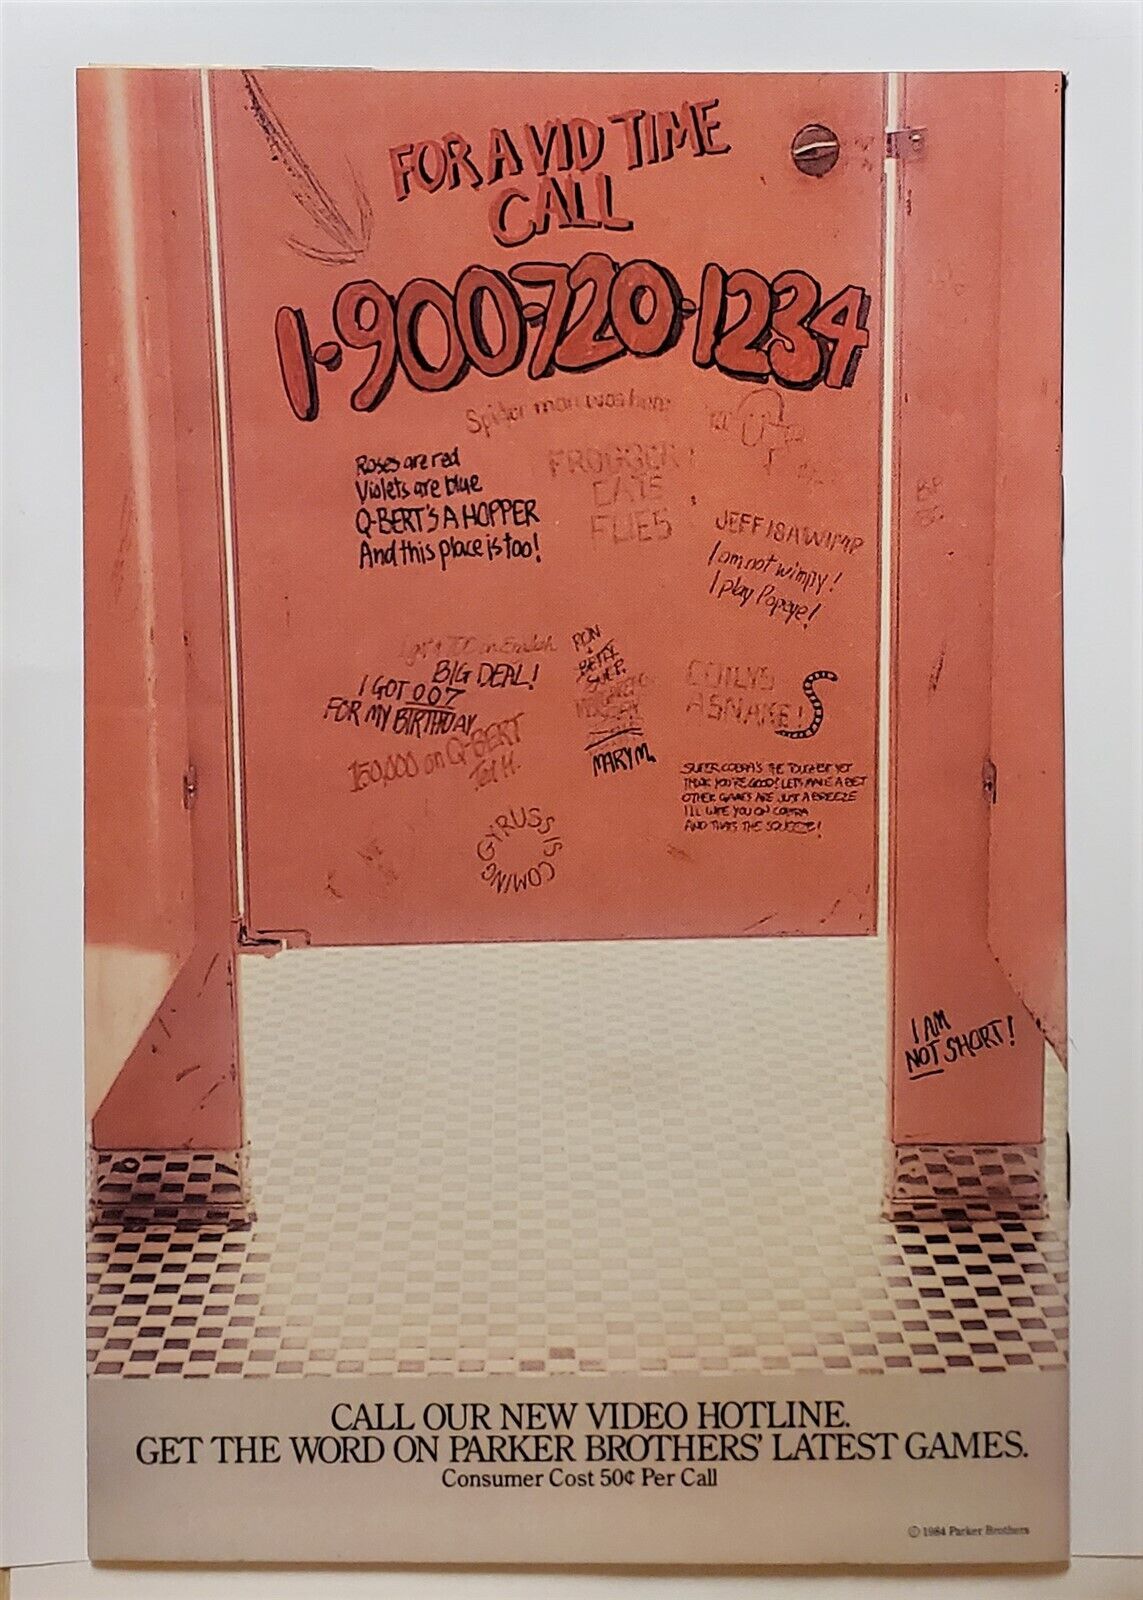 FOR A VID TIME
CALL
1-900-720-1234
Spider man was here
Roses are red
Violets are blue
Q-BERT'S A HOPPER
And this place is too!
FROGGER
EATS
FLIES
JEFF IS A WIMP
I am not wimpy!
I play Popeye!
BIG DEAL!
I GOT 007
FOR MY BIRTHDAY
150,000 on Q-BERT
Ted H.
RON
+
BETTY
SUE P.
MARY M.
COILY'S
A SNAKE!
SUPER COBRA'S THE TOUGHEST YET
THINK YOU'RE GOOD! LETS MAKE A BET
OTHER GAMES ARE JUST A BREEZE
I'LL WIPE YOU ON COBRA
AND THATS THE SQUEEZE!
GYRUSS IS COMING
I AM
NOT SHORT!
CALL OUR NEW VIDEO HOTLINE.
GET THE WORD ON PARKER BROTHERS' LATEST GAMES.
Consumer Cost 50¢ Per Call
© 1984 Parker Brothers